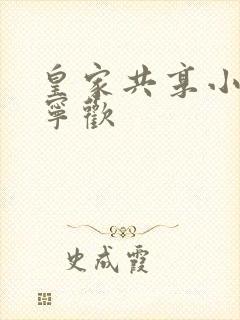 皇家共享小
寧歡
史成霞